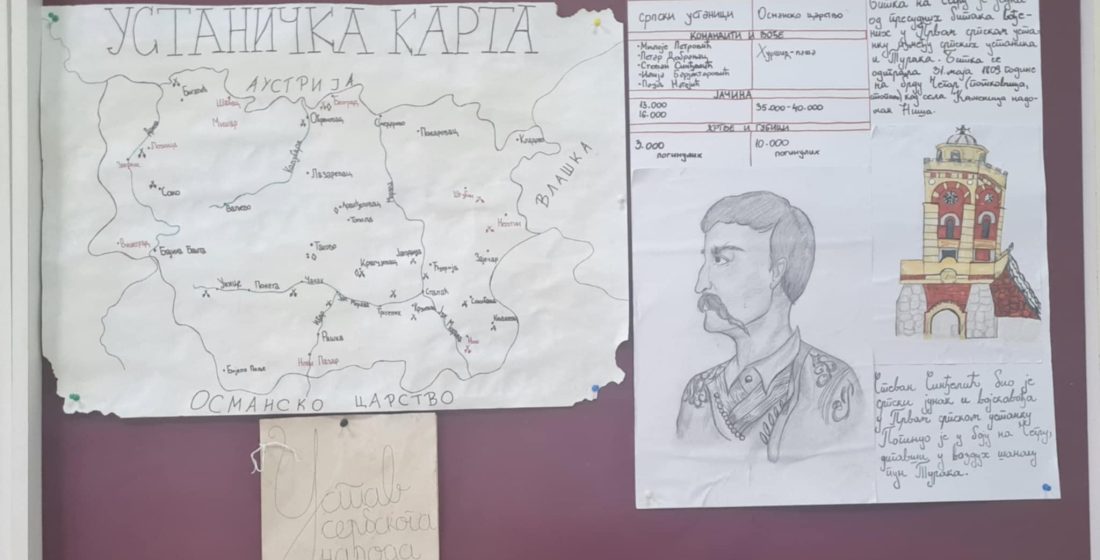 УСТАНИЧКА КАРТА
АУСТРИЈА
Београд
Шабац
Мишар
Београд
Обреновац
Смедерево
Пожаревац
Кладово
Дрина
Лозница
Колубара
ВЛАШКА
Соко
Лазаревац
Ваљево
Аранђеловац
Топола
Морава
Штубик
Неготин
Вишеград
Бајина Башта
Таково
Крагујевац
Јагодина
Ћуприја
Зајечар
Ужице
Пожега
Чачак
Зап. Морава
Трстеник
Сталаћ
Крушевац
Јуж. Морава
Ибар
Рашка
Ниш
Нови Пазар
Бијело Поље
ОСМАНСКО ЦАРСТВО
Устав
сербскога
народа
СРПСКИ УСТАНИЦИ
Османско царство
КОМАНДАНТИ И ВОЂЕ
-Милоје Петровић
-Петар Добрњац
-Стеван Синђелић
-Илија Барјактаровић
Хуршид-паша
ЈАЧИНА
13.000
16.000
35.000-40.000
ЖРТВЕ И ГУБИЦИ
3.000
погинулих
10.000
погинулих
од пресудних битака вође-
них у Првом српском уста-
нку између српских устаника
и Турака. Битка се
одиграла 31. маја 1809. године
на брду Чегар (потковица,
код села Каменица надо-
мак Ниша.
Стеван Синђелић био је
српски јунак и војсковођа
у Првом српском устанку
Погинуо је у боју на Чегру,
дигавши у ваздух шанац
пун Турака.